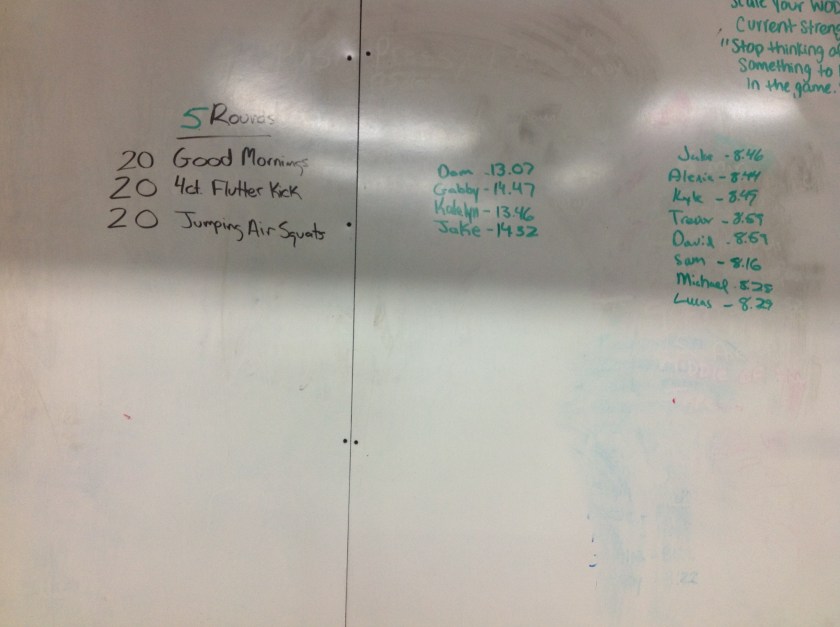 5 Rounds
20 Good Mornings
20 4ct. Flutter Kick
20 Jumping Air Squats
Dom - 13.07
Gabby - 14.47
Katelyn - 13.46
Jake - 14 32
Scale Your WOD
Current Stren
"Stop thinking o
Something to
In the game."
Jake - 8.46
Alexis - 8.44
Kyle - 8.49
Trevor - 8.59
David - 8.59
Sam - 8.16
Michael - 8.25
Lucas - 8.29